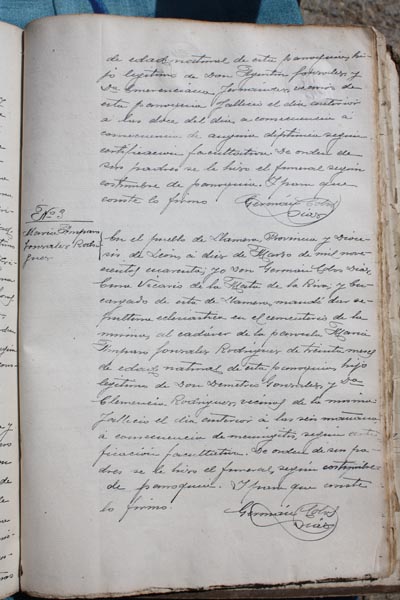 de edad, natural de esta parroquia, hi-
jo legitimo de Don Agustin Gonzalez y
Dª Emerenciana Fernandez vecinos de
esta parroquia. Fallecio el dia anterior
a las doce del dia a consecuencia
consecuencia de angina diptérica según
certificacion facultativa. De orden de
sus padres se le hizo el funeral según
costumbre de parroquia. Y para que
conste lo firmo
German Colin
Diaz
Nº 3
Maria Amparo
Gonzalez Rodri-
guez
En el pueblo de Llamera Provincia y Dioce-
sis de Leon, a diez de Marzo de mil nove-
cientos cuarenta; yo Don German Colin Diaz,
Cura Vicario de la Mata de la Riva, y En-
cargado de esta de Llamera, mandé dar se-
pultura eclesiastica en el cementerio de la
misma al cadáver de la parvula Maria
Amparo Gonzalez Rodriguez de treinta meses
de edad, natural de esta parroquia, hija
legitima de Don Demetrio Gonzalez y Dª
Clemencia Rodriguez, vecinos de la misma
Fallecio el dia anterior a las seis mañana
a consecuencia de meningitis, según certi-
ficación facultativa. De orden de sus pa-
dres se le hizo el funeral, según costumbre
de parroquia. Y para que conste
lo firmo.
German Colin
Diaz